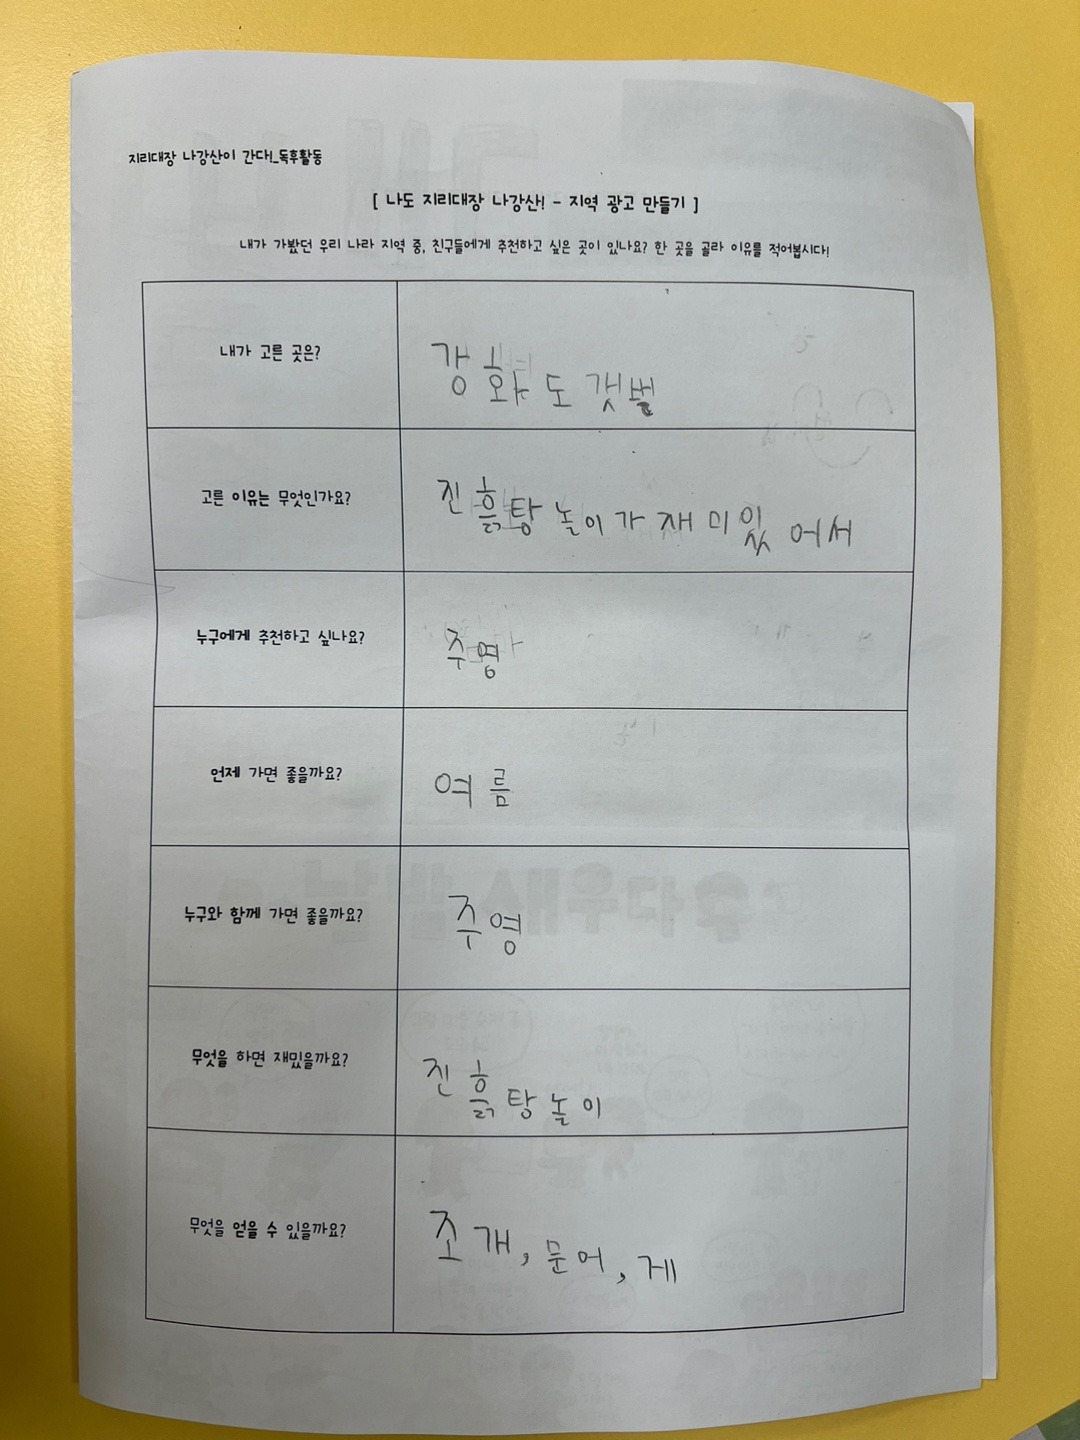 지리대장 나강산이 간다!_독후활동
[ 나도 지리대장 나강산! - 지역 광고 만들기 ]
내가 가봤던 우리 나라 지역 중, 친구들에게 추천하고 싶은 곳이 있나요? 한 곳을 골라 이유를 적어봅시다!
내가 고른 곳은?
강화도 갯벌
고른 이유는 무엇인가요?
진흙탕 놀이가 재미있어서
누구에게 추천하고 싶나요?
주영
언제 가면 좋을까요?
여름
누구와 함께 가면 좋을까요?
주영
무엇을 하면 재밌을까요?
진흙탕놀이
무엇을 얻을 수 있을까요?
조개, 문어, 게